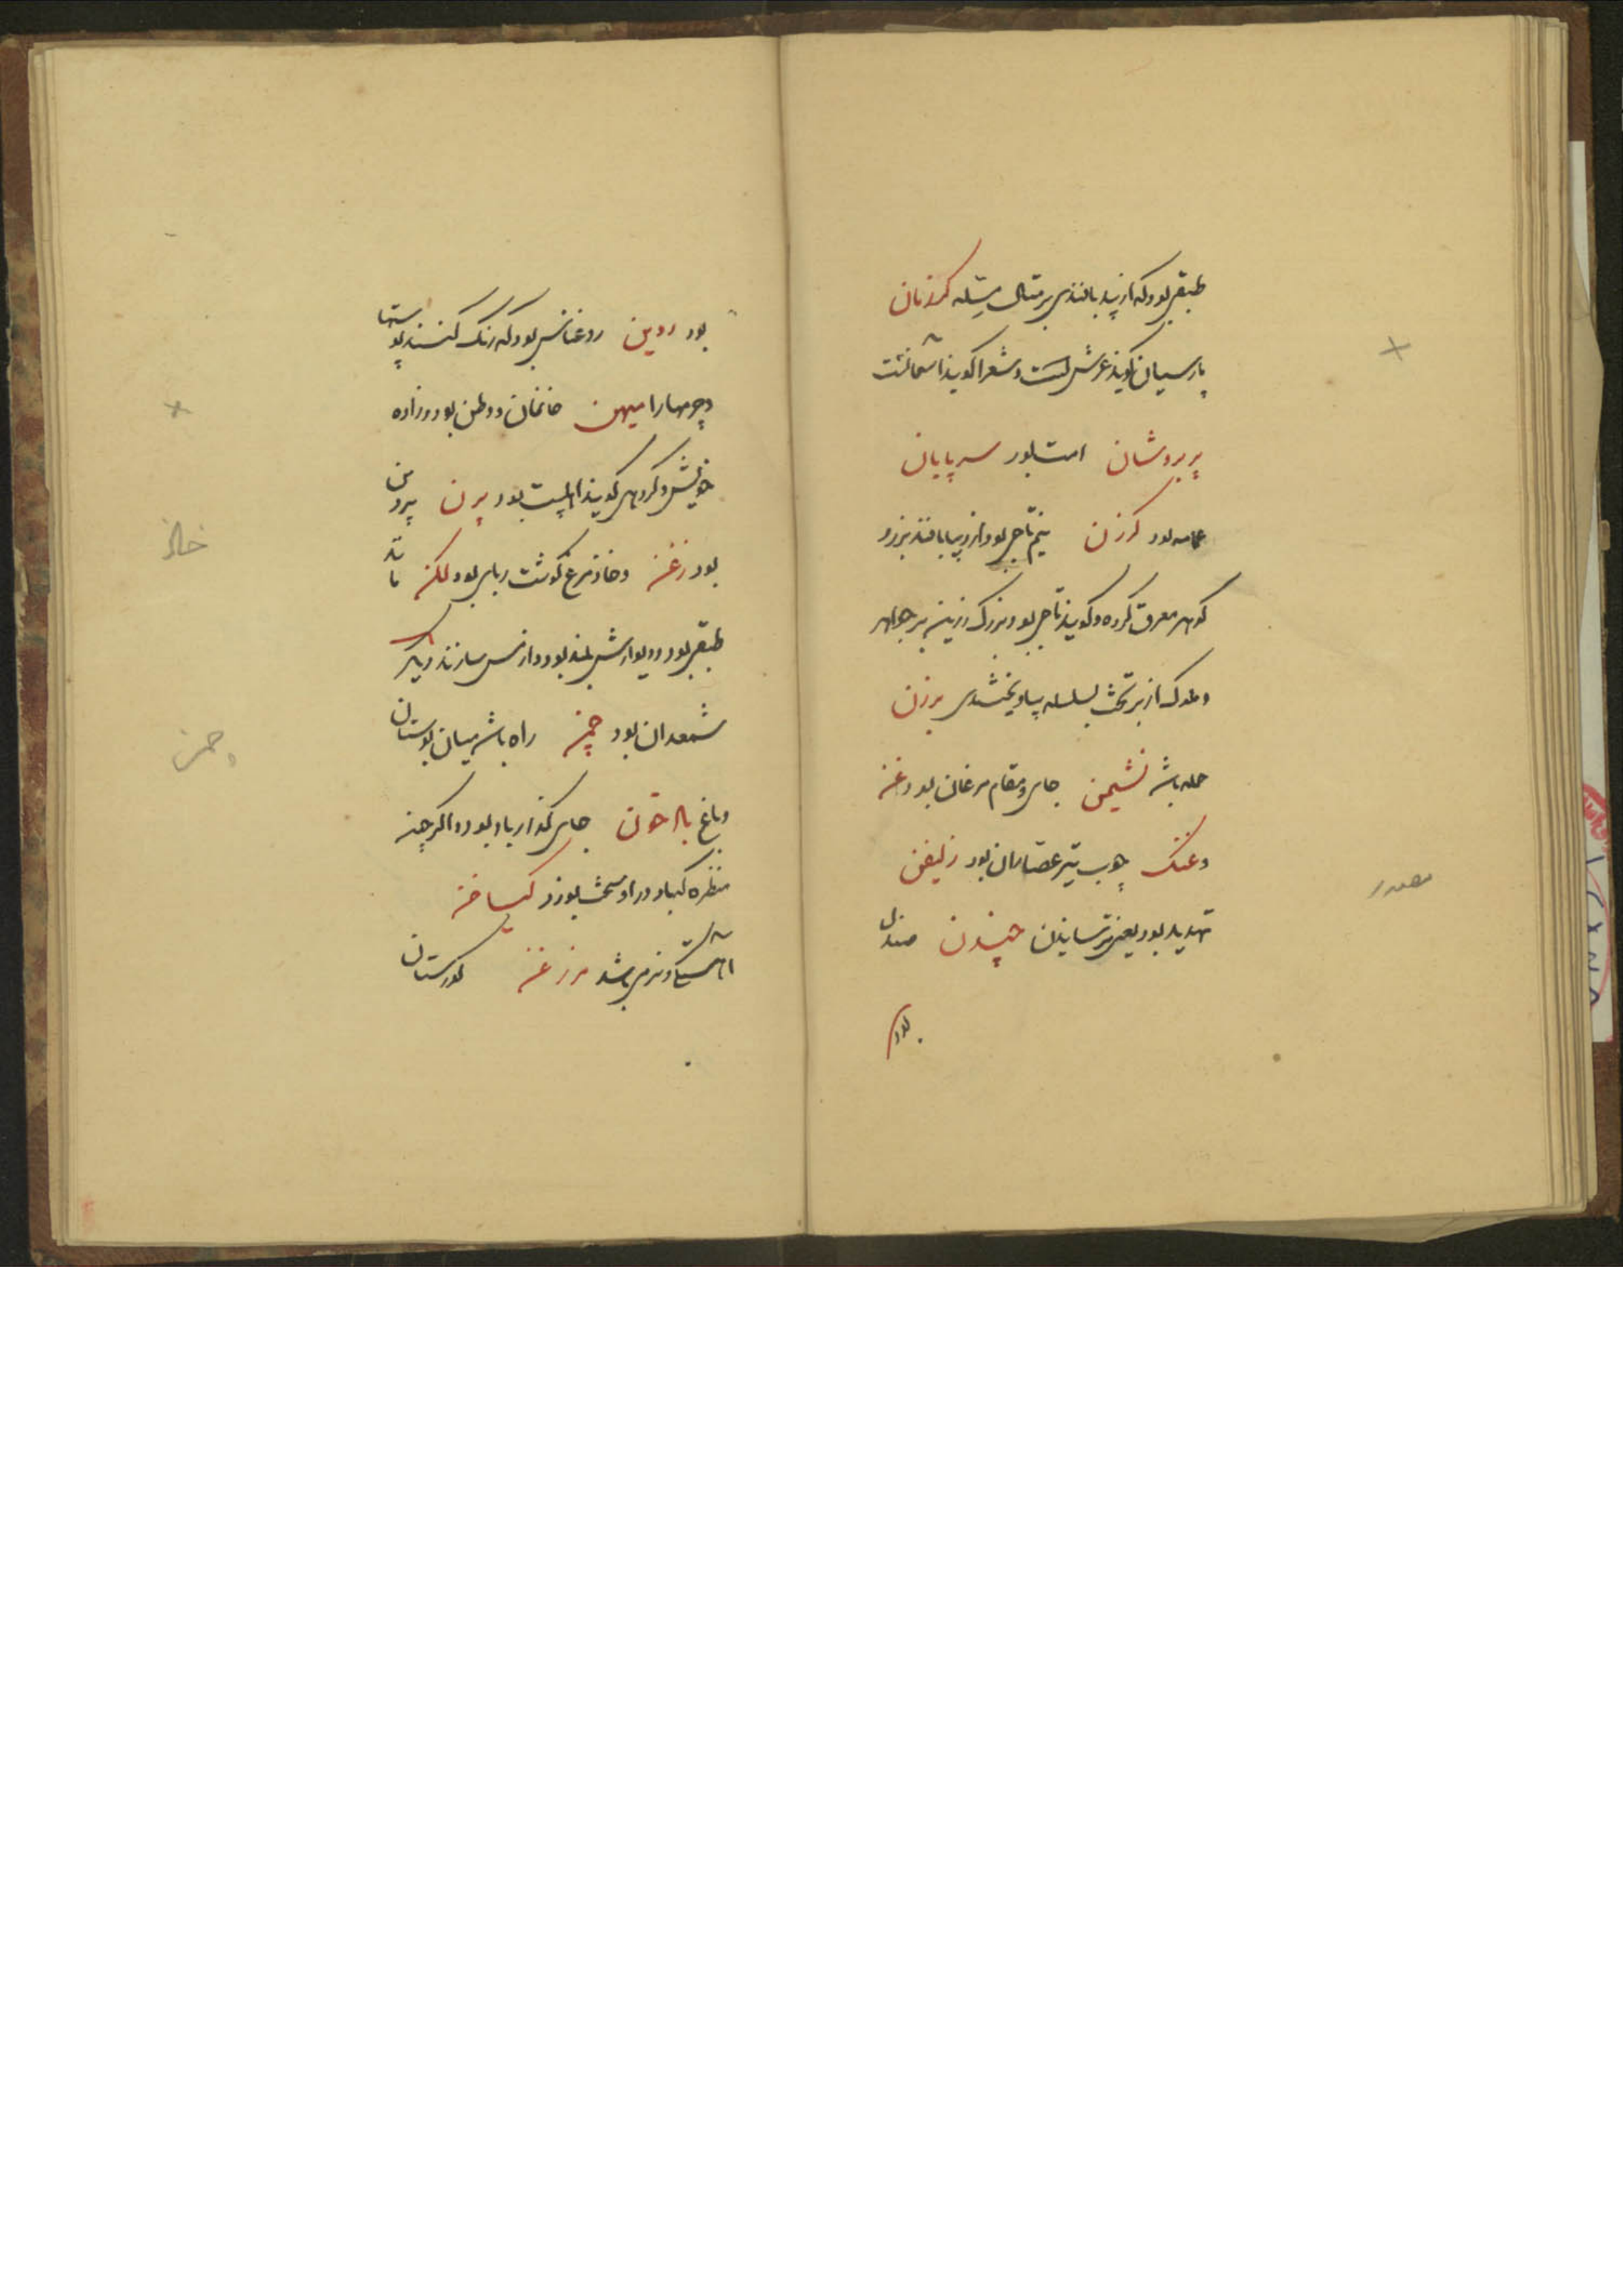 طبقی بود که از بید بافندی بر مثال سله کرزمان
پارسیان گویند عرش است و شعرا گویند آسمانست
پربروشان امت بود سرپایان
عمامه بود گرزن نیم تاجی بود از دیبا بافند بزر و
گوهر مغرق کرده و گویند تاجی بود بزرگ زرینه پر جواهر
و ملوک از بر تخت بسلسله بیاویختندی برزن
محله باشد نشیمن جای و مقام مرغان بود و غن
و غنک چوب تیر عصاران بود زلیفن
تهدید بود یعنی ترسانیدن چندن صندل
بود
بود روین روغناسی بود که رنگ کنند پوستها
و چرمها را میهن خانمان و وطن بود و زاده
خویش و گروهی گویند بود پرن پروین
بود زغن و خاد مرغ گوشت ربای بود لگن مانند
طبقی بود و دیوارش بلند بود و از مس سازند و دیگر
شمعدان بود چمن راه باشد میان بوستان
و باغ بادخون جای گذار باد بود و اگر چند
بود کیاخن
آهستگی و نرمی باشد مرزغن گورستان
خاد
چمن
مصدر